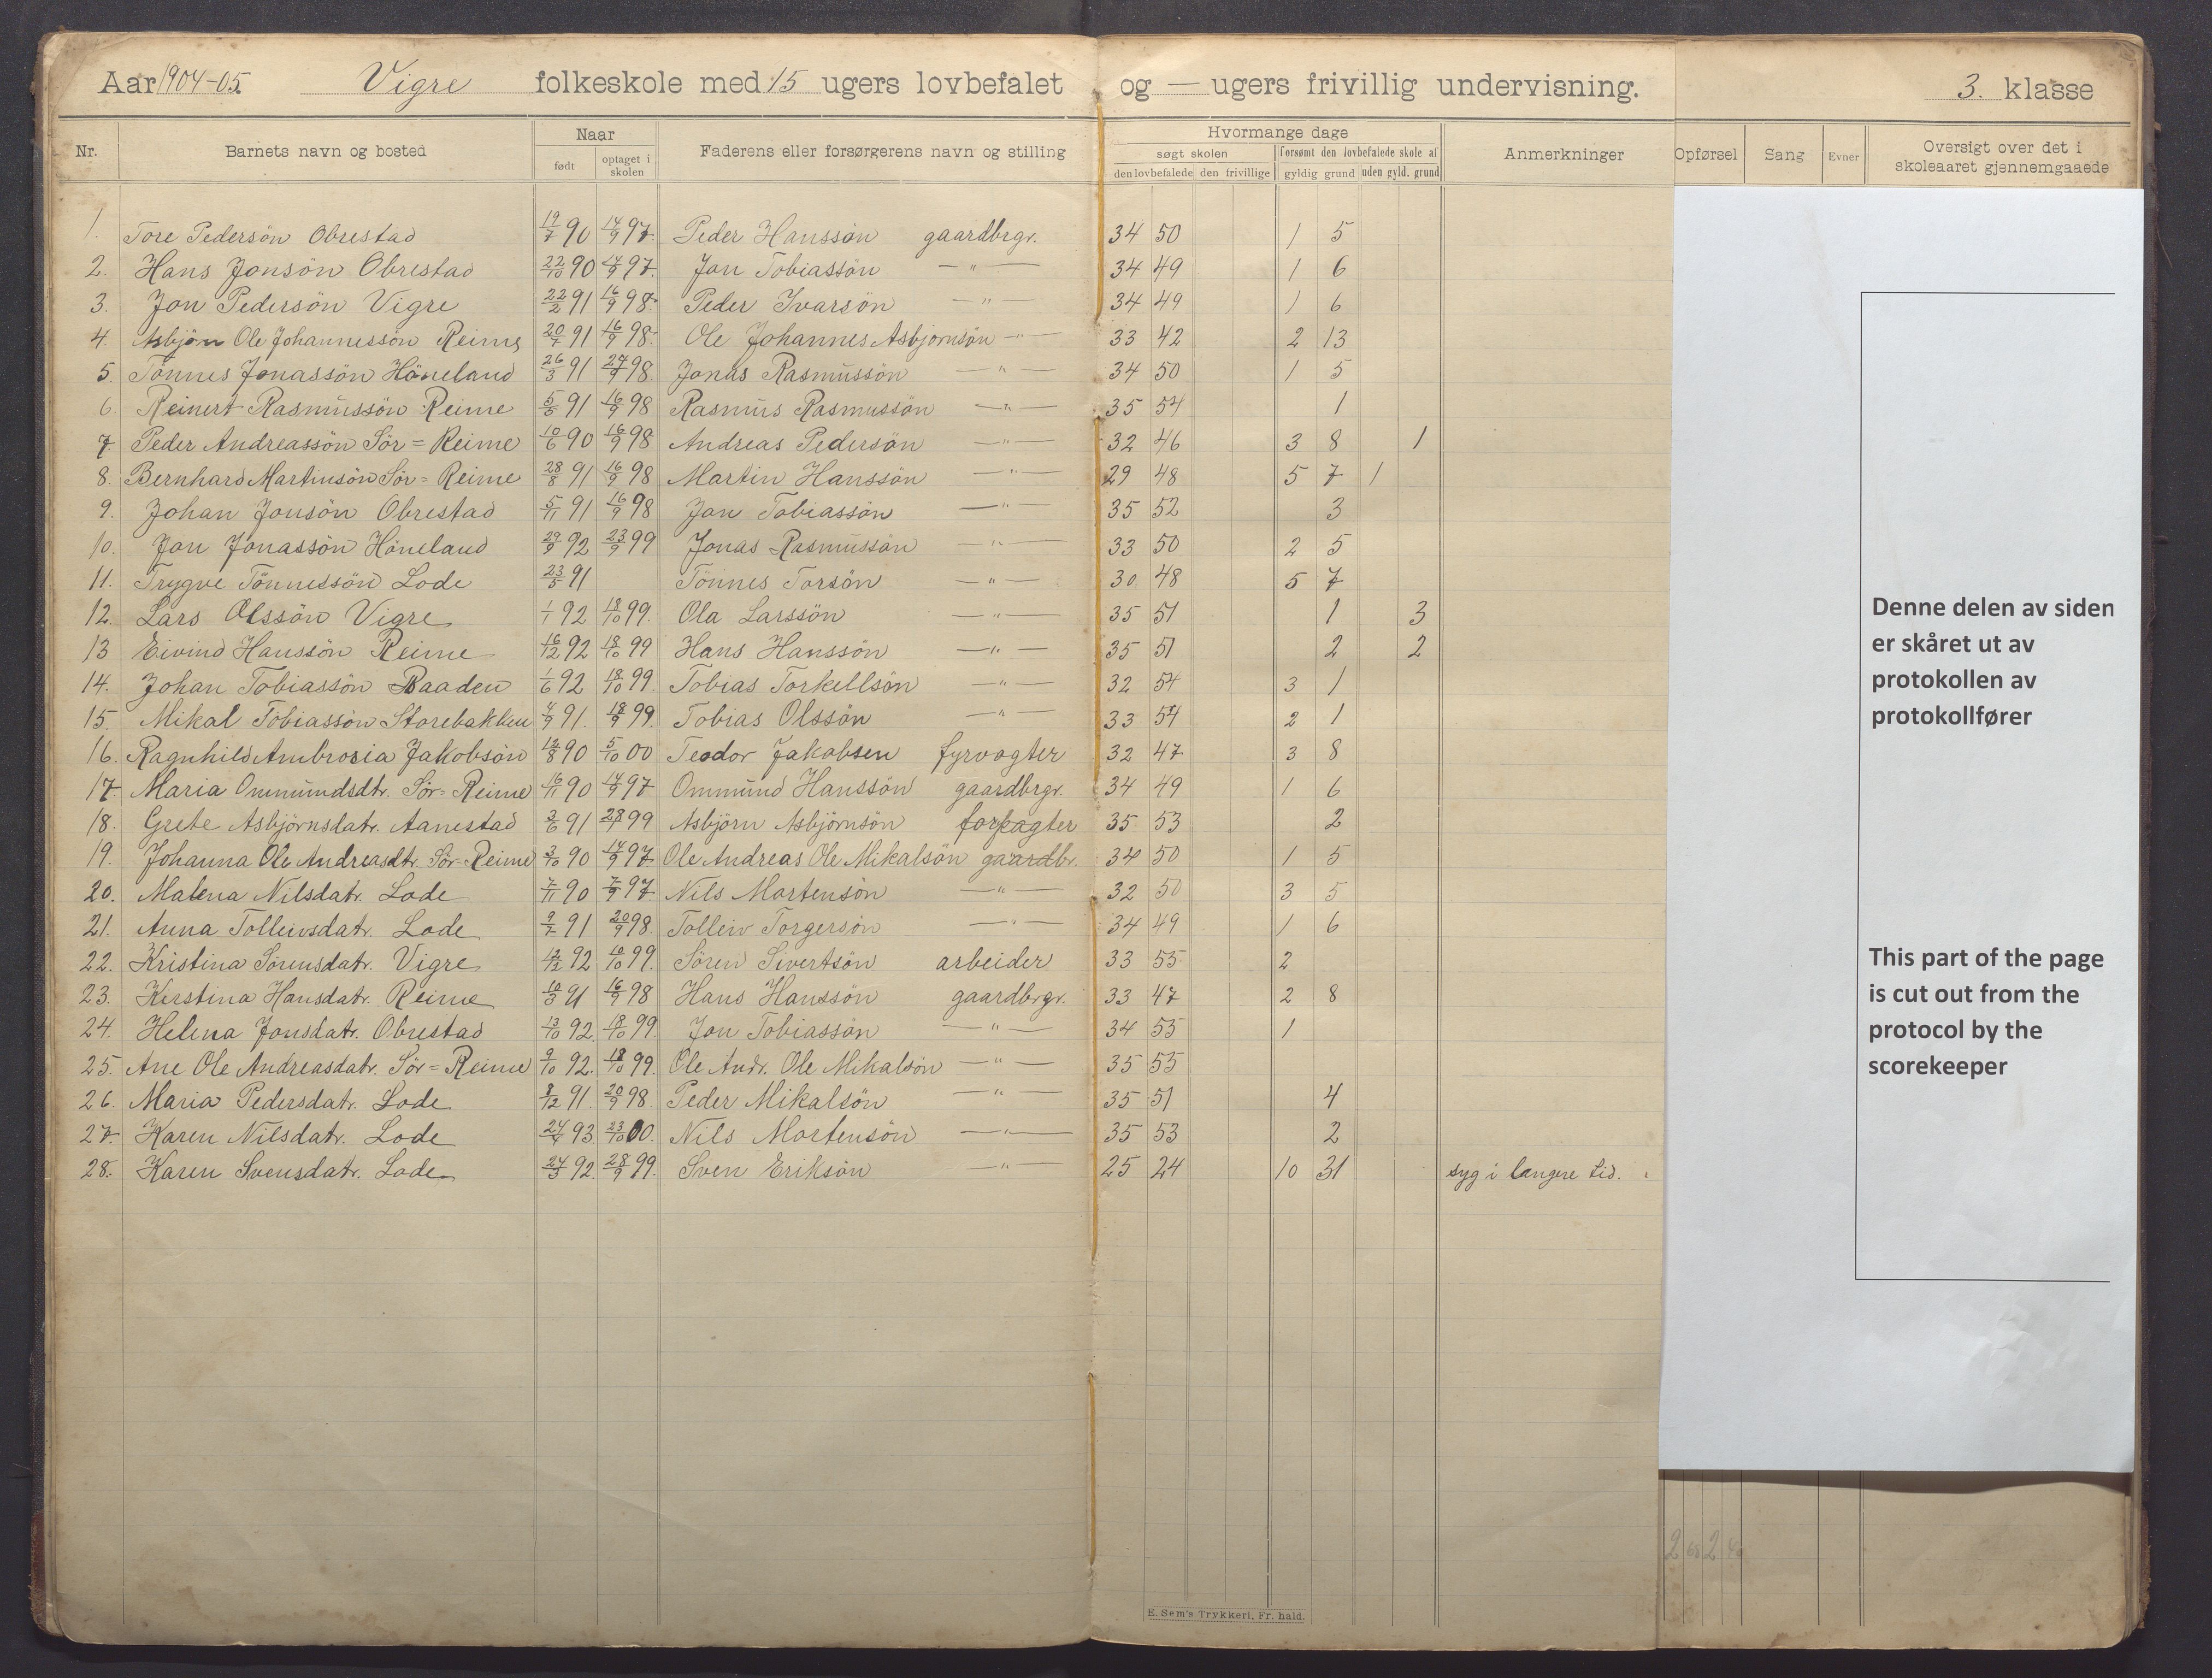 Aar 1904-05. Vigre folkeskole med 15 ugers lovbefalet og — ugers frivillig undervisning. 3. klasse
Nr. Barnets navn og bosted Naar født optaget i skolen Faderens eller forsørgerens navn og stilling Hvormange dage søgt skolen den lovbefalede den frivillige forsømt den lovbefalede skole af gyldig grund uden gyld. grund Anmerkninger Opførsel Sang Evner Oversigt over det i skoleaaret gjennemgaaede
1. Tore Pedersön Obrestad 19/7 90 14/9 97. Peder Hanssön gaardbrgr. 34 50 1 5
2. Hans Jonsön Obrestad 22/10 90 14/9 97. Jon Tobiassön — " — 34 49 1 6
3. Jon Pedersön Vigre 22/2 91 16/9 98. Peder Ivarsön — " — 34 49 1 6
4. Asbjörn Ole Johannessön Reime 20/7 91 16/9 98. Ole Johannes Asbjörnsön — " — 33 42 2 13
5. Tönnes Jonassön Höneland 26/3 91 27/9 98. Jonas Rasmussön — " — 34 50 1 5
6. Reinert Rasmussön Reime 5/5 91 16/9 98 Rasmus Rasmussön — " — 35 54 1
7. Peder Andreassön Sör=Reime 10/6 90 16/9 98 Andreas Pedersön — " — 32 46 3 8 1
8. Bernhard Martinsön Sör=Reime 28/8 91 16/9 98 Martin Hanssön — " — 29 48 5 7 1
9. Johan Jonsön Obrestad 5/11 91 16/9 98 Jon Tobiassön — " — 35 52 3
10. Jon Jonassön Höneland 29/9 92 23/9 99 Jonas Rasmussön — " — 33 50 2 5
11. Trygve Tönnessön Lode 23/5 91 Tönnes Torsön — " — 30 48 5 7
12. Lars Olssön Vigre 1/1 92 18/10 99. Ola Larssön — " — 35 51 1 3
13 Eivind Hanssön Reime 16/12 92 18/10 99 Hans Hanssön — " — 35 51 2 2
14. Johan Tobiassön Raaden 1/6 92 18/10 99. Tobias Torkellsön — " — 32 54 3 1
15. Mikal Tobiassön Storebakken 4/9 91. 18/9 99. Tobias Olssön — " — 33 54 2 1
16. Ragnhild Ambrosia Jakobsön 12/8 90 5/10 00 Teodor Jakobsen fyrvogter 32 47 3 8
17. Maria Ommundsdtr. Sör=Reime 16/11 90 14/9 97 Ommund Hanssön gaardbrgr. 34 49 1 6
18. Grete Asbjörnsdatr. Aanestad 3/6 91 28/9 99 Asbjörn Asbjörnsön forpagter 35 53 2
19. Johanna Ole Andreasdtr. Sör=Reime 3/10 90 14/9 97 Ole Andreas Ole Mikalsön gaardbr. 34 50 1 5
20. Malena Nilsdatr. Lode 7/11 90 7/9 97 Nils Mortensön — " — 32 50 3 5
21. Anna Tolleivsdatr. Lode 9/7 91 20/9 98. Tolleiv Torgersön — " — 34 49 1 6
22. Kristina Sörensdatr. Vigre 12/12 92 10/10 99. Sören Sivertsön arbeider 33 55 2
23. Kirstina Hansdatr. Reime 10/3 91 16/9 98 Hans Hanssön gaardbrgr. 33 47 2 8
24. Helena Jonsdatr. Obrestad 13/10 92. 18/10 99. Jon Tobiassön — " — 34 55 1
25. Ane Ole Andreasdatr. Sör=Reime 9/10 92. 18/10 99. Ole Andr. Ole Mikalsön — " — 35 55
26. Maria Pedersdatr. Lode 8/12 91. 20/9 98. Peder Mikalsön — " — 35 51 4
27. Karen Nilsdatr. Lode 24/4 93. 23/10 00. Nils Mortensön — " — 35 53 2
28. Karen Svensdatr. Lode 24/3 92. 28/9 99. Sven Eriksön — " — 25 24 10 31 syg i længere tid.
Denne delen av siden
er skåret ut av
protokollen av
protokollfører
This part of the page
is cut out from the
protocol by the
scorekeeper
E. Sem's Trykkeri, Fr. hald.